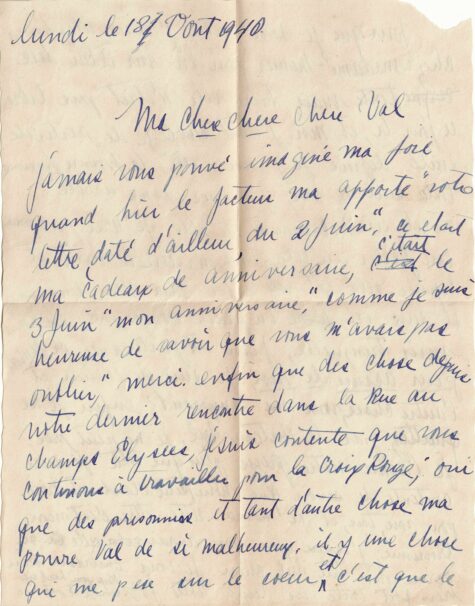 lundi le 18 Aout 1940.
Ma chere chere chere Val
jamais vous pouvé imaginé ma joie
quand hier le facteur ma apporté "votre
lettre daté d'ailleur du 2 Juin", ce etait
ma cadeaux de anniversaire, c'est c'étart le
3 Juin "mon anniversaire," comme je suis
heureuse de savoir que vous m'avais pas
oublier," merci. enfin que des chose depuis
notre dernier rencontre dans la Rue au
champs Elysees, je suis contente que vous
continons à travailler pour la Croix Rouge, oui
que des prisonnies et tant d'autre chose ma
pauvre Val de si malheureux, il y une chose
qui me pese sur le coeur et c'est que le